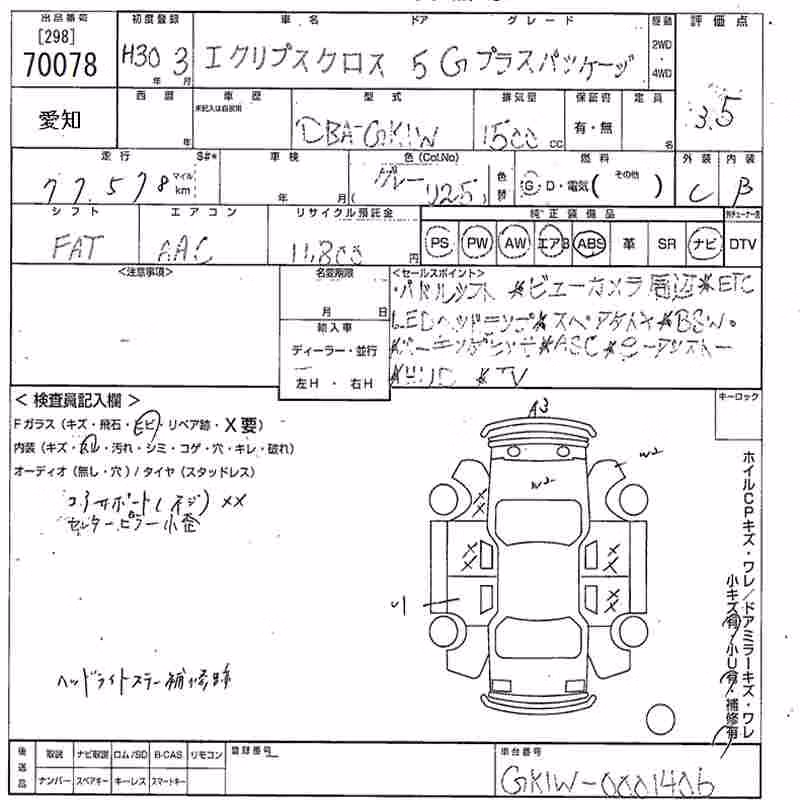 出品番号 初度登録 車名 ドア グレード 駆動 評価点
[298]
70078 H30 3 エクリプスクロス 5 Gプラスパッケージ 2WD・4WD 3.5
年 月
愛知 西暦 車歴 型式 排気量 保証書 定員
未記入は自家用
年 DBA-GK1W 1500 cc 有・無 名
走行 S#* 車検 色(Col.No) 燃料 外装 内装
77,578 マイル km 年 月 グレー ( U25 ) 色替 G D・電気 ( その他 ) C B
シフト エアコン リサイクル預託金 純正装備品
FAT AAC 11,800 円 PS PW AW エアB ABS 革 SR ナビ DTV
<注意事項> 名変期限 <セールスポイント>
月 日 ・パドルシフト *ビューカメラ周辺*ETC
輸入車
ディーラー・並行
左H・右H *HUD *TV
<検査員記入欄> キーロック
Fガラス(キズ・飛石・ヒビ・リペア跡・X要)
内装(キズ・スレ・汚れ・シミ・コゲ・穴・キレ・破れ)
オーディオ(無し・穴)/タイヤ(スタッドレス)
コアサポート(ネジ)XX
センターピラー小歪
ヘッドライトステー補修跡
A3
W2
W2
XX
XX XX
XX
U1
ホイルCPキズ・ワレ/ドアミラーキズ・ワレ
小キズ有・小U有・補修有
後送品 取説 ナビ取説 ロム/SD B-CAS リモコン 登録番号 車台番号
ナンバー スペアキー キーレス スマートキー GK1W-0001406